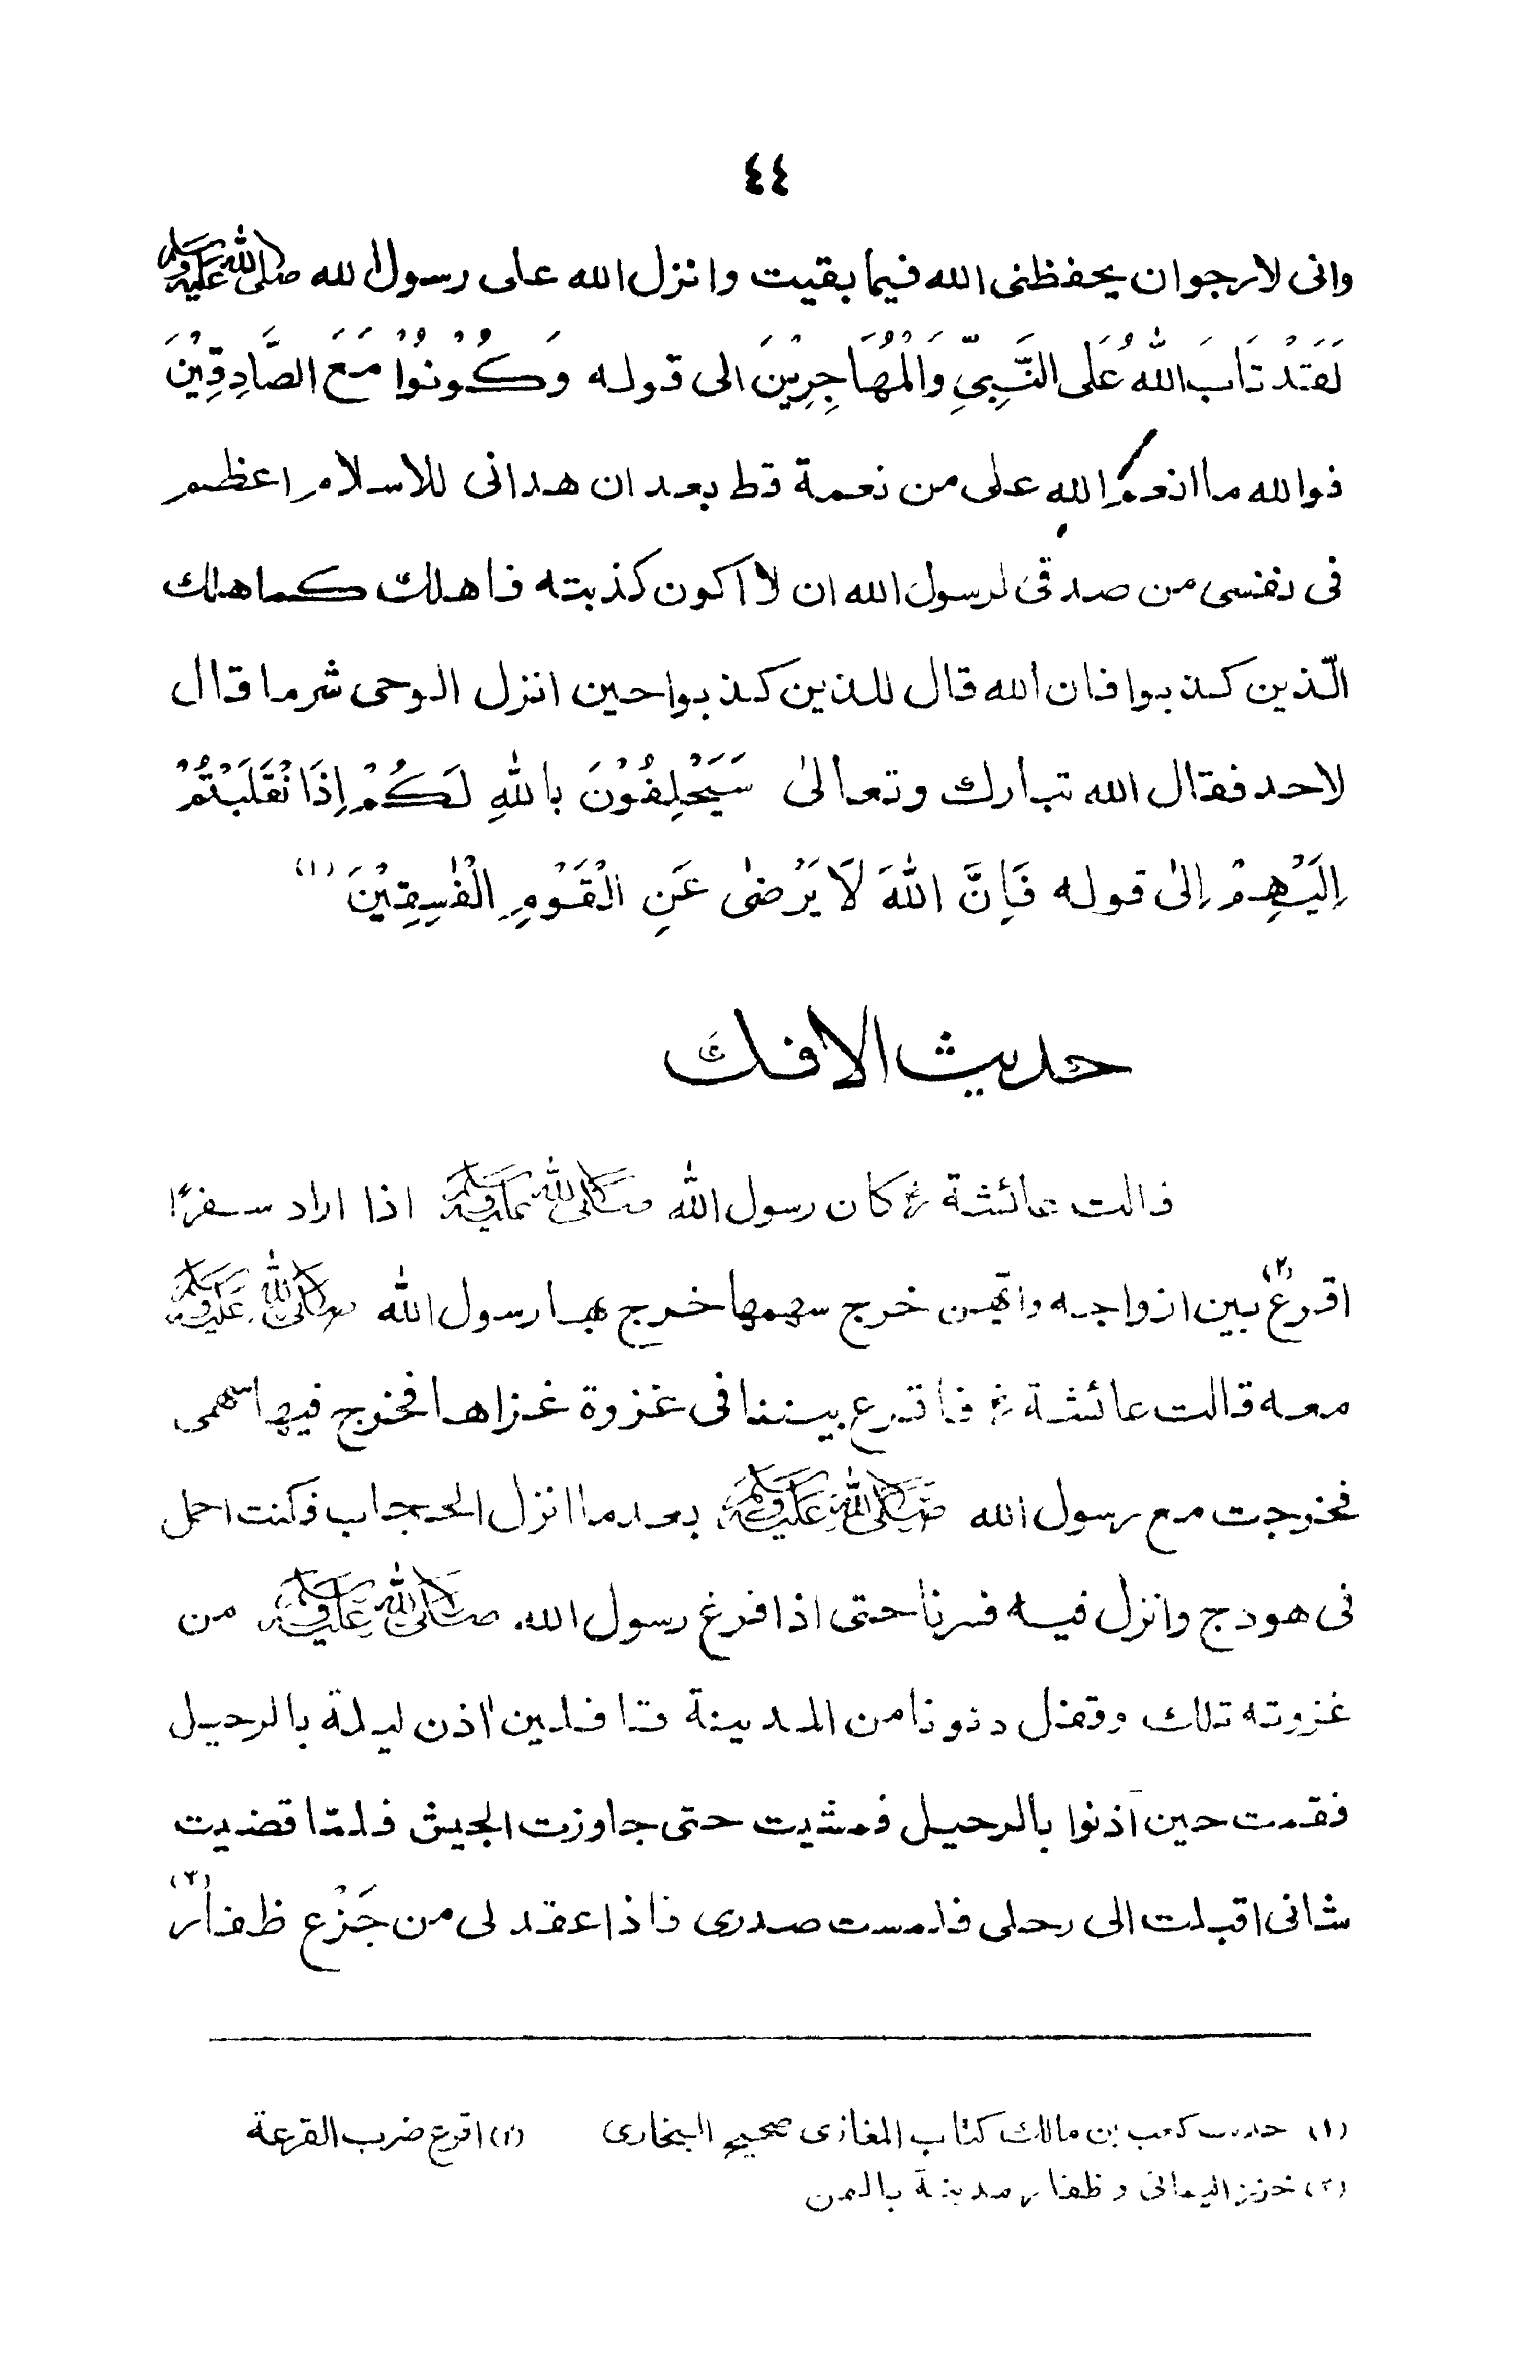 ٤٤
وانى لارجوان يحفظنى الله فيما بقيت وانزل الله على رسول الله صلى الله عليه وسلم
لَقَدْ تَابَ اللهُ عَلَى النَّبِيِّ وَالْمُهَاجِرِيْنَ الى قوله وَكُوْنُوْا مَعَ الصَّادِقِيْنَ
فوالله ما انعم الله على من نعمة قط بعد ان هدانى للاسلام اعظم
فى نفسى من صدقى لرسول الله ان لا اكون كذبته فاهلك كما هلك
الّذين كذبوا فان الله قال للذين كذبوا حين انزل الوحى شر ما قال
لاحد فقال الله تبارك وتعالىٰ سَيَحْلِفُوْنَ بِاللهِ لَكُمْ اِذَا نْقَلَبْتُمْ
اِلَيْهِمْ اِلىٰ قوله فَاِنَّ اللهَ لَا يَرْضىٰ عَنِ الْقَوْمِ الْفٰسِقِيْنَ (١)
حديث الافك
قالت عائشة رض كان رسول الله صلى الله عليه وسلم اذا اراد سفرًا
اقرع (٢) بين ازواجه وايّهن خرج سهمها خرج بها رسول الله صلى الله عليه وسلم
معه قالت عائشة رض فاقرع بيننا فى غزوة غزاها فخرج فيها سهمى
فخرجت مع رسول الله صلى الله عليه وسلم بعد ما انزل الحجاب فكنت احمل
فى هودج وانزل فيه فسرنا حتى اذا فرغ رسول الله صلى الله عليه وسلم من
غزوته تلك وقفل دنونا من المدينة قافلين اذن ليلة بالرحيل
فقمت حين آذنوا بالرحيل فمشيت حتى جاوزت الجيش فلمّا قضيت
شانى اقبلت الى رحلى فلمست صدرى فاذا عقد لى من جَزْع ظفار (٣)
(١) حديث كعب بن مالك كتاب المغازى صحيح البخارى (٢) اقرع ضرب القرعة
(٣) خرز اليمانى وظفار مدينة باليمن